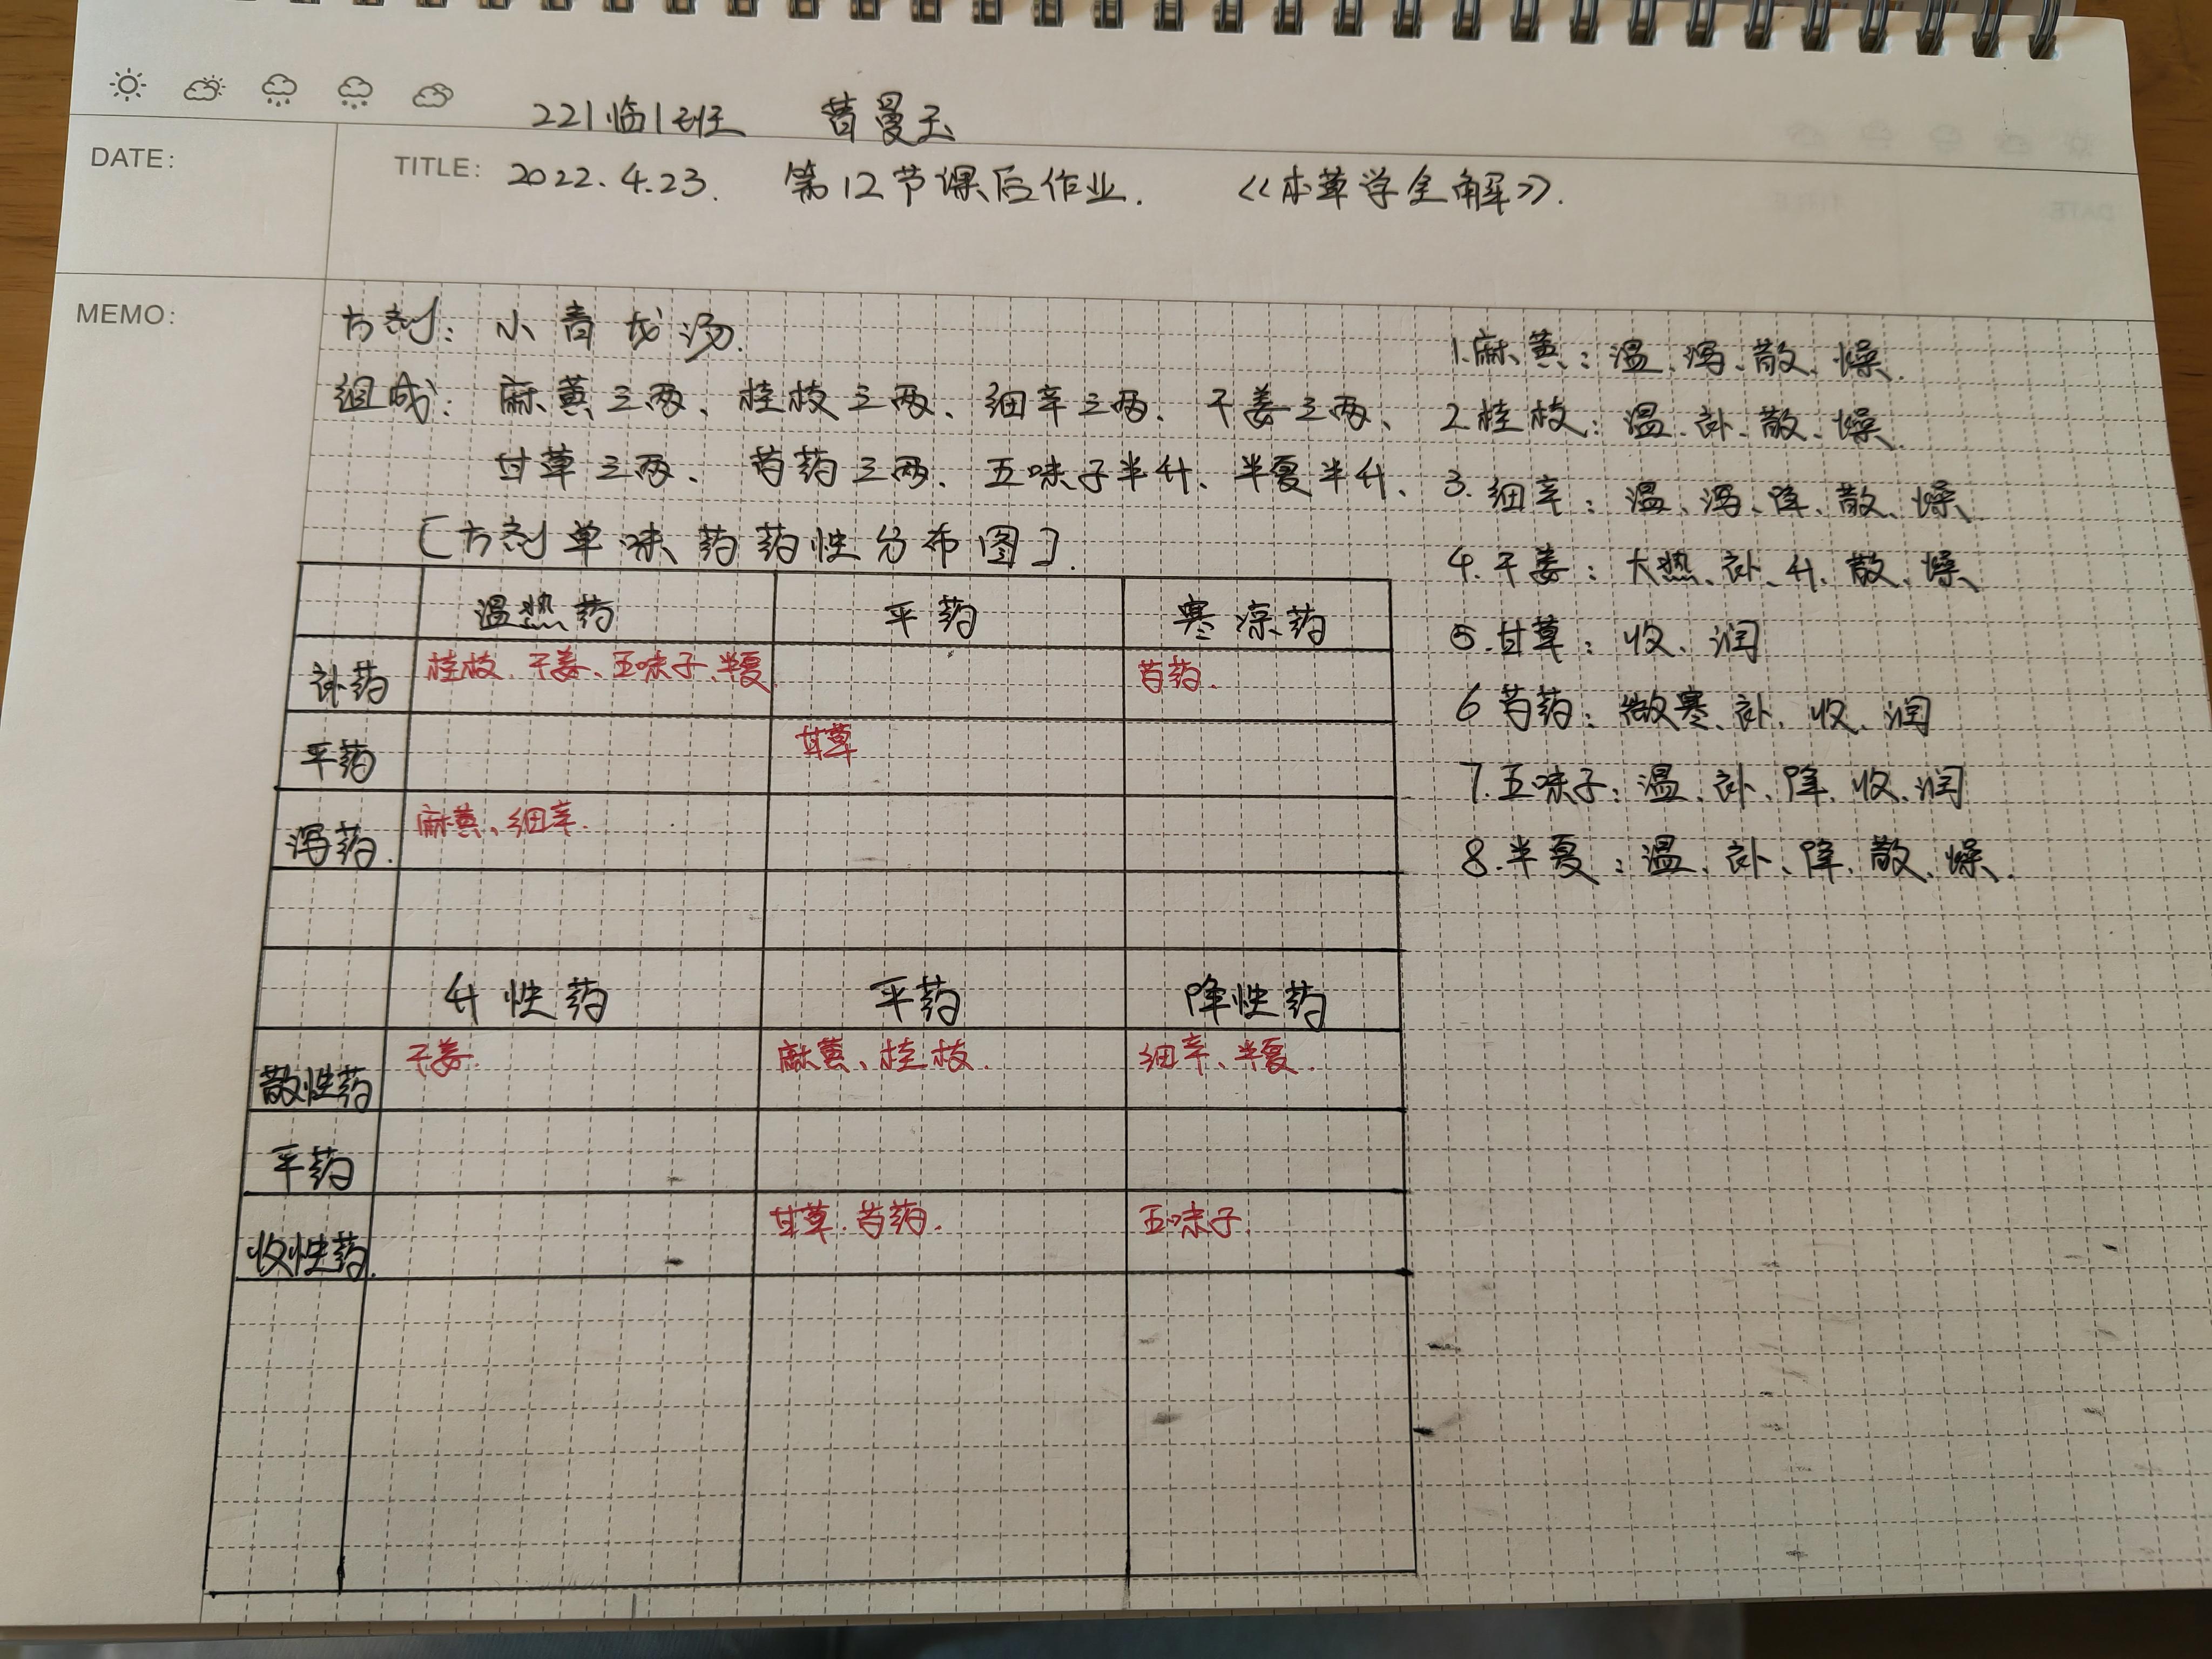 221临1班 昔曼玉
DATE:
TITLE: 2022.4.23. 第12节课后作业. 《本草学全解》.
MEMO:
方剂: 小青龙汤.
组成: 麻黄三两、桂枝三两、细辛三两、干姜三两、
甘草三两、芍药三两、五味子半升、半夏半升、
[方剂单味药药性分布图].
温热药 平药 寒凉药
补药 桂枝、干姜、五味子、半夏 芍药.
平药 甘草
泻药. 麻黄、细辛.
升性药 平药 降性药
散性药 干姜. 麻黄、桂枝. 细辛、半夏.
平药
收性药. 甘草、芍药. 五味子.
1.麻黄: 温、泻、散、燥.
2.桂枝: 温、补、散、燥.
3.细辛: 温、泻、降、散、燥.
4.干姜: 大热、补、升、散、燥
5.甘草: 收、润
6 芍药: 微寒、补、收、润
7.五味子: 温、补、降、收、润
8.半夏: 温、补、降、散、燥.